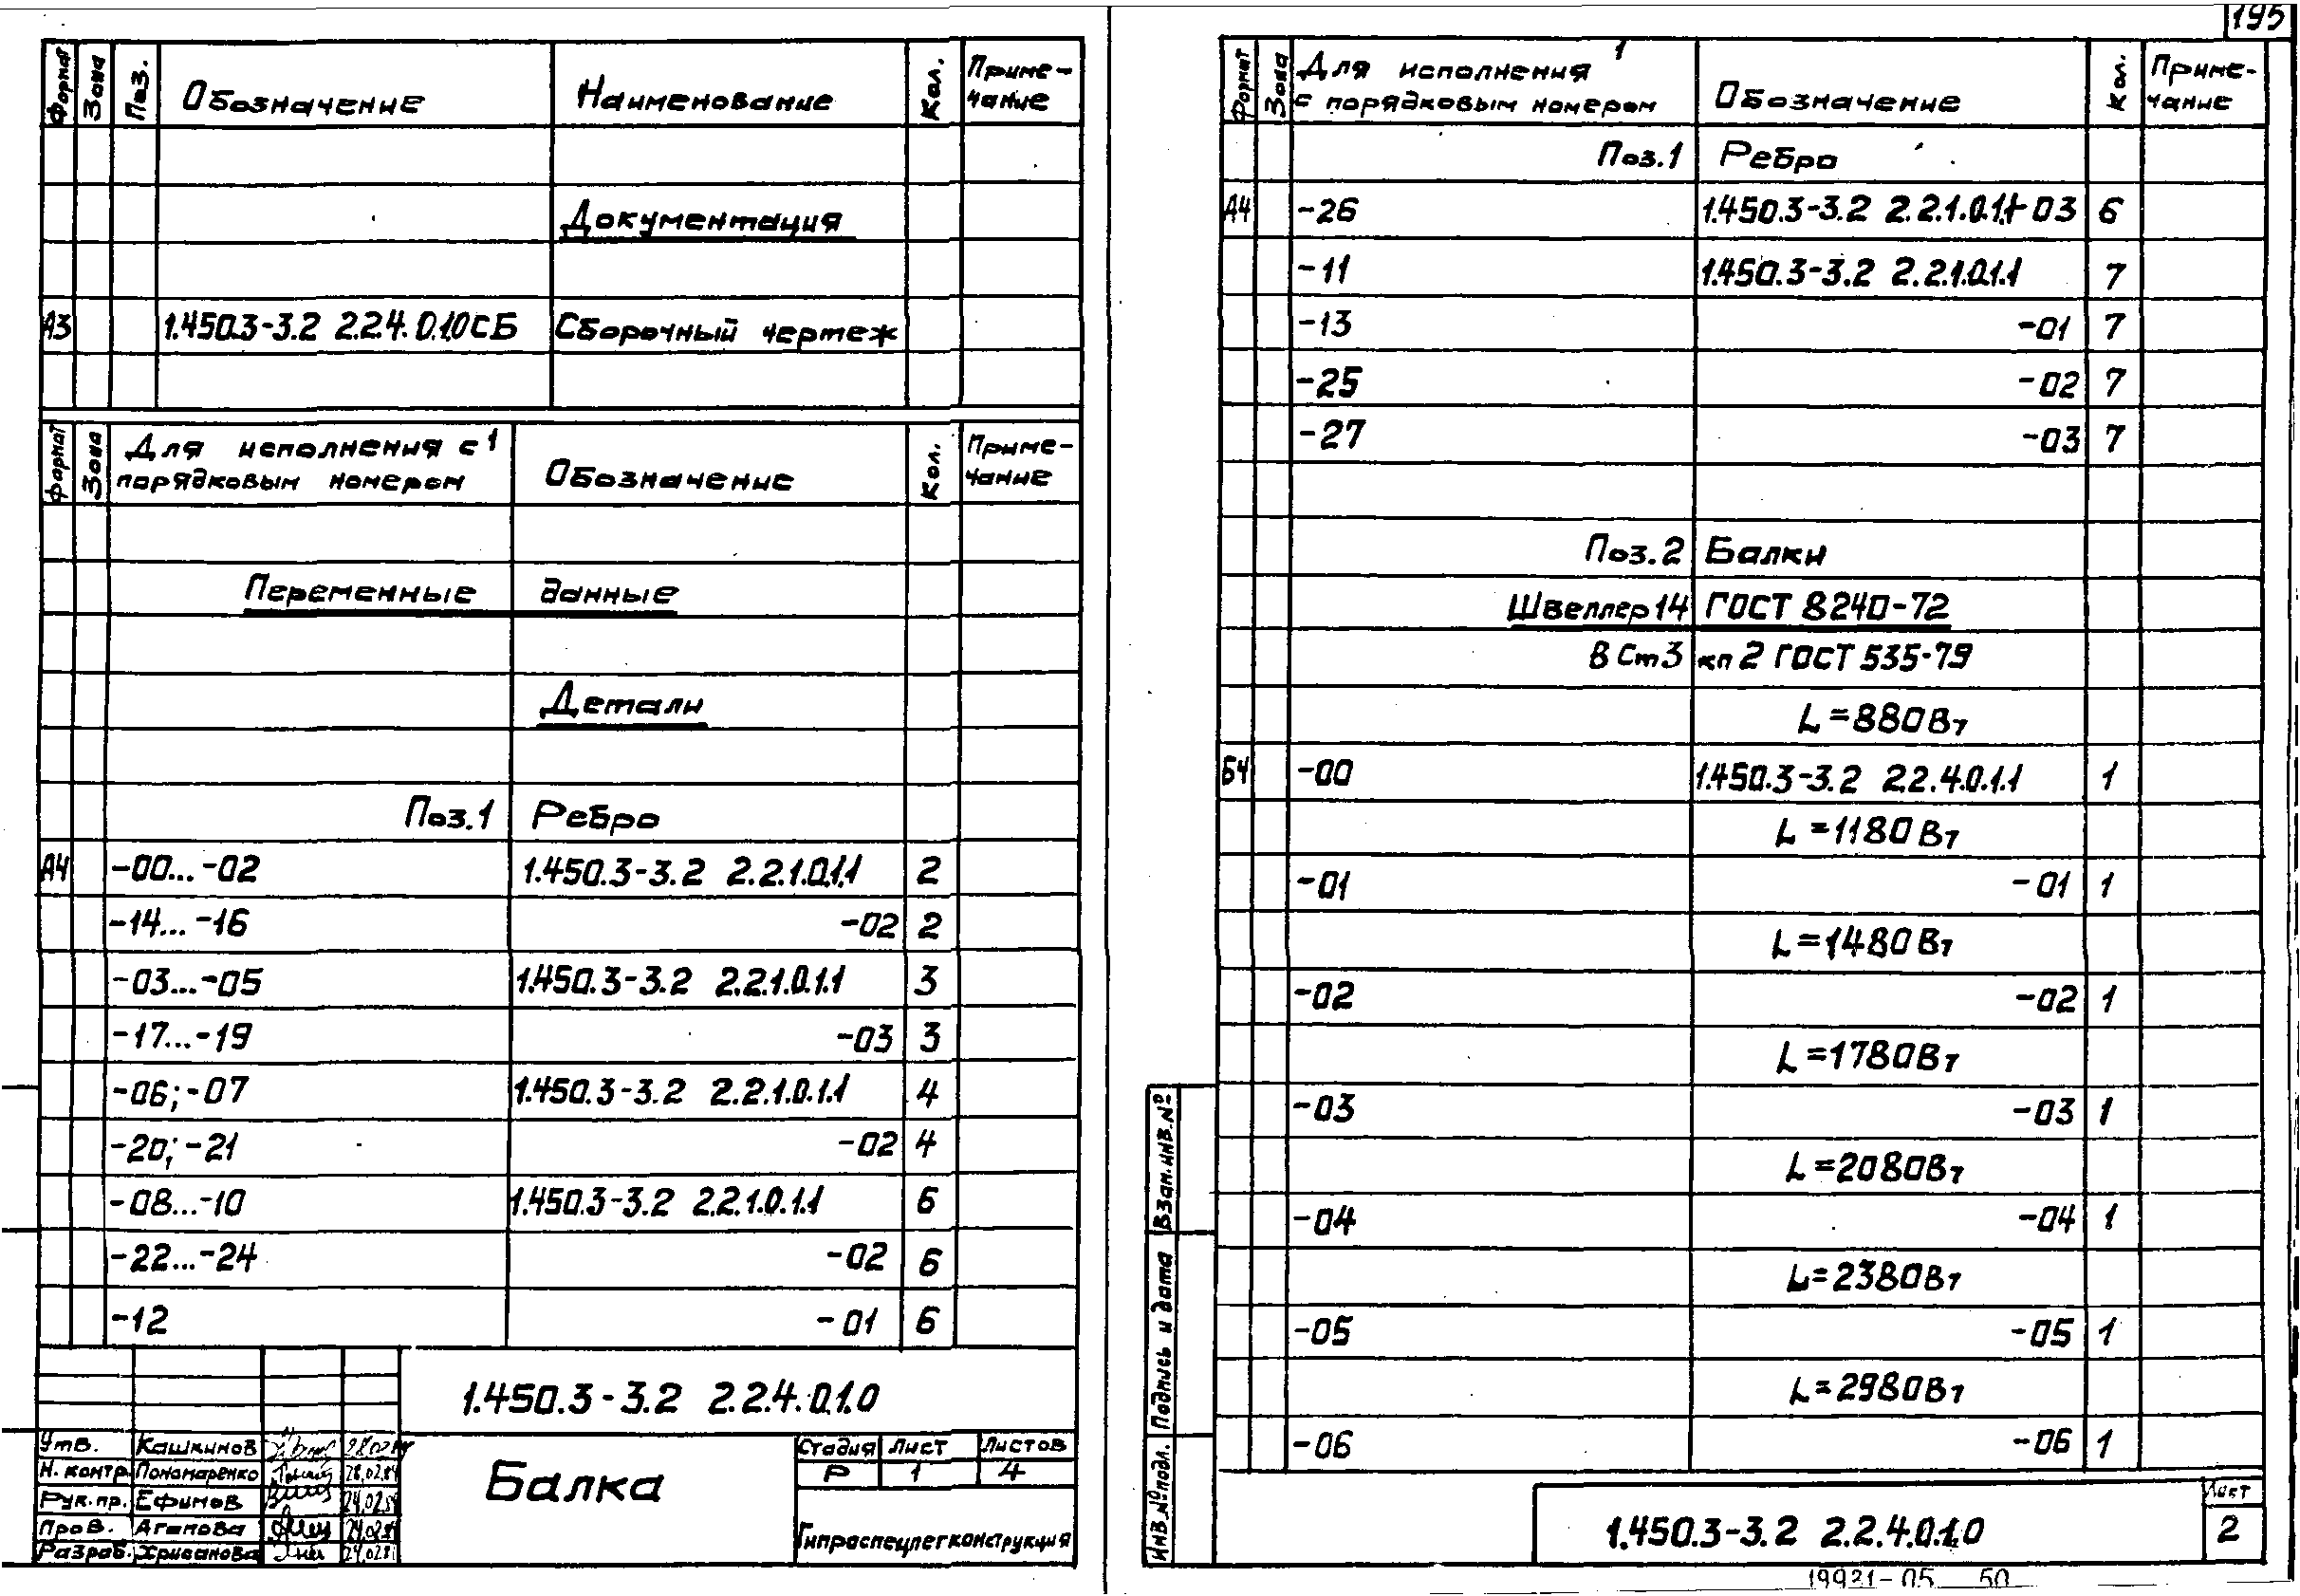 195
Формат Зона Поз. Обозначение Наименование Кол. Приме-
чание
Документация
А3 1.450.3-3.2 2.2.4.0.1.0СБ Сборочный чертеж
Формат Зона Для исполнения с 1 Обозначение Кол. Приме-
порядковым номером чание
Переменные данные
Детали
Поз.1 Ребро
А4 -00...-02 1.450.3-3.2 2.2.1.0.1.1 2
-14...-16 -02 2
-03...-05 1.450.3-3.2 2.2.1.0.1.1 3
-17...-19 -03 3
-06;-07 1.450.3-3.2 2.2.1.0.1.1 4
-20;-21 -02 4
-08...-10 1.450.3-3.2 2.2.1.0.1.1 6
-22...-24 -02 6
-12 -01 6
1.450.3-3.2 2.2.4.0.1.0
Утв. Кашкинов
Н. контр. Пономаренко 28.02.84
Рук.пр. Ефимов 24.02.84
Пров. Агапова 24.02.84
Разраб. Хрисанова
Балка
Стадия Лист Листов
Р 1 4
Гипроспецлегконструкция
Формат Зона Для исполнения 1 Обозначение Кол. Приме-
с порядковым номером чание
Поз.1 Ребро
А4 -26 1.450.3-3.2 2.2.1.0.1.1-03 6
-11 1.450.3-3.2 2.2.1.0.1.1 7
-13 -01 7
-25 -02 7
-27 -03 7
Поз.2 Балки
Швеллер 14 ГОСТ 8240-72
В Ст3 кп 2 ГОСТ 535-79
L=880Вт
Б4 -00 1.450.3-3.2 2.2.4.0.1.1 1
L=1180Вт
-01 -01 1
L=1480Вт
-02 -02 1
L=1780Вт
-03 -03 1
L=2080Вт
-04 -04 1
L=2380Вт
-05 -05 1
L=2980Вт
-06 -06 1
Взам.инв.№
Подпись и дата
Инв.№ подл.
1.450.3-3.2 2.2.4.0.1.0
Лист
2
19921-05 50